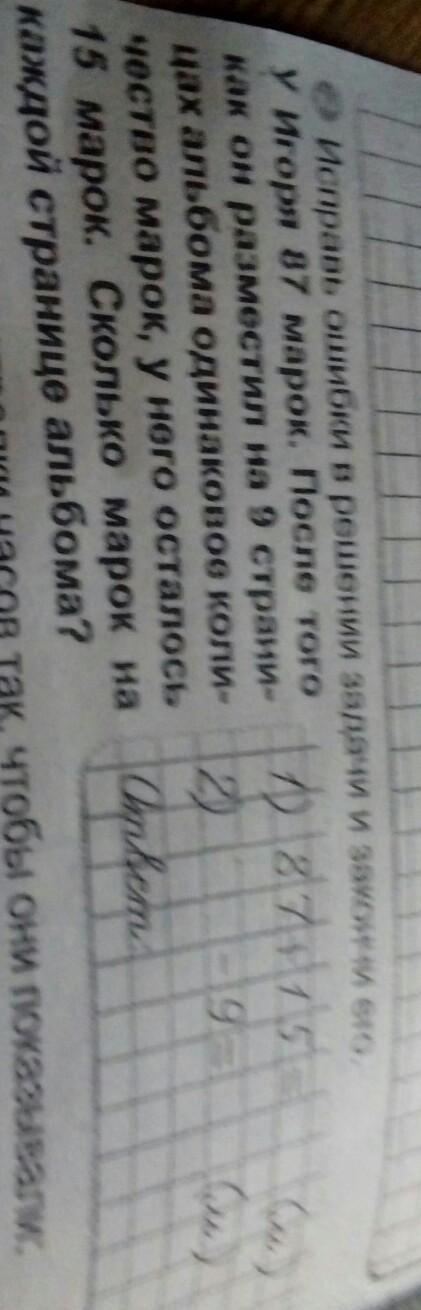 Исправь ошибки в решении задачи и закончи его.
У Игоря 87 марок. После того
как он разместил на 9 страни-
цах альбома одинаковое коли-
чество марок, у него осталось
15 марок. Сколько марок на
каждой странице альбома?
1) 87+15= (м.)
2) - 9= (м.)
Ответ:
часов так, чтобы они показывали: